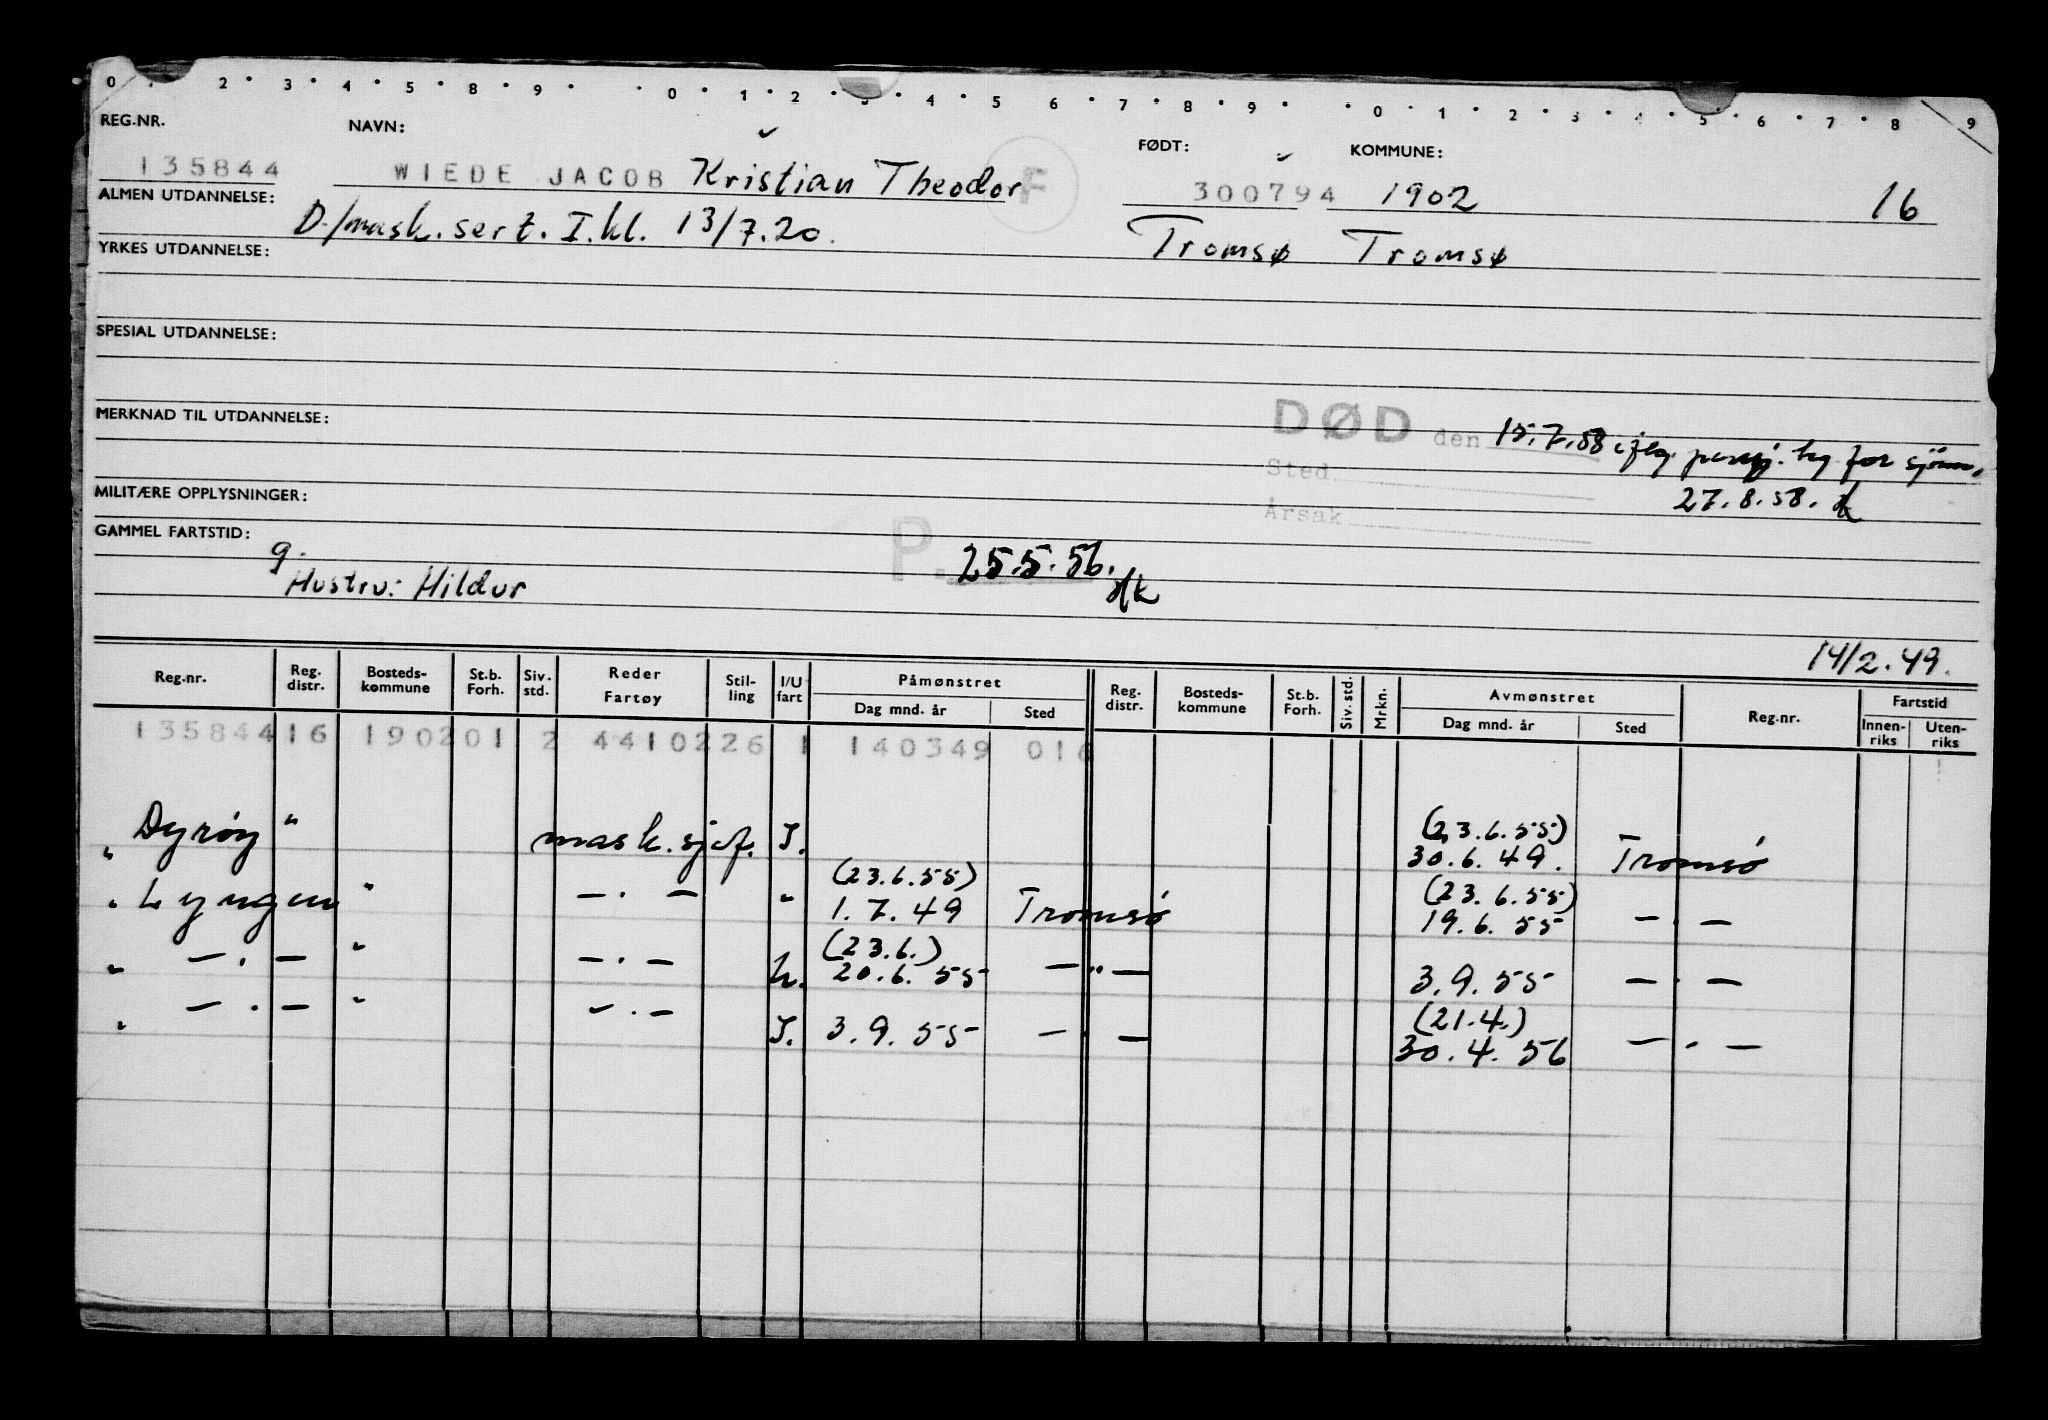 0 2 3 4 5 8 9 0 1 2 3 4 5 6 7 8 9 0 1 2 3 4 5 6 7 8 9
REG.NR. NAVN: FØDT: KOMMUNE:
135844 WIEDE JACOB Kristian Theodor F 300794 1902 16
ALMEN UTDANNELSE: D./mask.sert. I.kl. 13/7.20. Tromsø Tromsø
YRKES UTDANNELSE:
SPESIAL UTDANNELSE:
MERKNAD TIL UTDANNELSE:
DØD den 15.7.58 for sjöm.
Sted
27.8.58.
MILITÆRE OPPLYSNINGER:
Årsak
GAMMEL FARTSTID:
g. P. 25.5.56.
Hustru: Hildur
14/2.49.
Reg.nr. Reg. distr. Bosteds-kommune St.b. Forh. Siv. std. Reder Fartøy Stil-ling I/U fart Påmønstret Dag mnd. år Sted Reg. distr. Bosteds-kommune St.b. Forh. Siv. std. Mrkn. Avmønstret Dag mnd. år Sted Reg.nr. Fartstid Innen-riks Uten-riks
135844 16 1902 01 2 4410226 1 140349 016
(23.6.55)
" Dyröy " mask.sjef. I. 30.6.49. Tromsö
(23.6.55) (23.6.55)
" Lyngen " — . — " 1.7.49 Tromsö 19.6.55 — . —
(23.6.)
" — . — " — . — U. 20.6.55 — " — 3.9.55 — . —
(21.4.)
" — . — " — . — I. 3.9.55 — . — 30.4.56 — . —